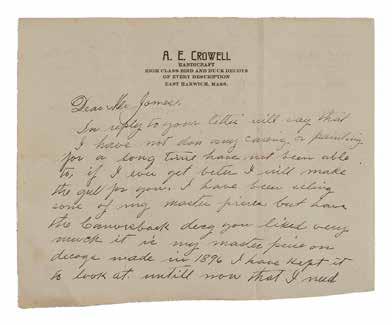 A. E. CROWELL
HANDICRAFT
HIGH CLASS BIRD AND DUCK DECOYS
OF EVERY DESCRIPTION
EAST HARWICH, MASS.
Dear Mr James.
In reply to your letter will say that
I have not don any carving or painting
for a long time have not been able
to, if I ever get better I will make
the gull for you. I have been selling
some of my master pieces but have
the Canvesback decoy you liked very
much it is my master peice on
decoys made in 1896 I have kept it
to look at untill now that I need